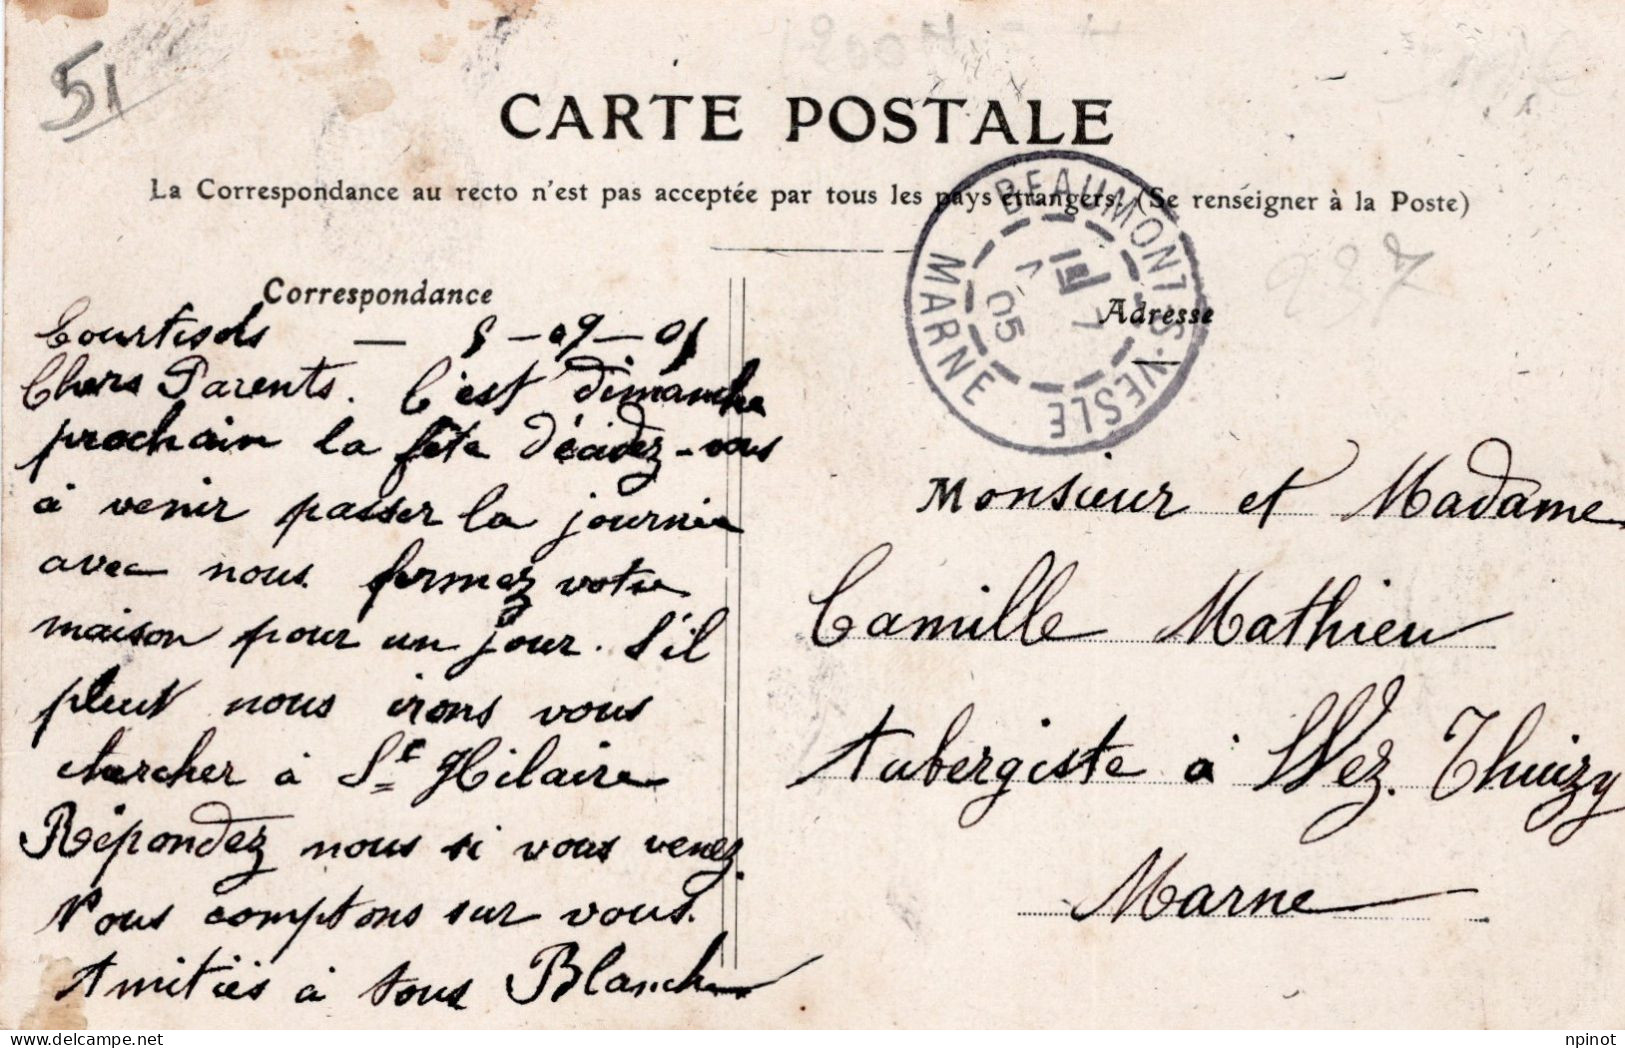 51
CARTE POSTALE
La Correspondance au recto n'est pas acceptée par tous les pays étrangers. (Se renseigner à la Poste)
BEAUMONT-S-VESLE
MARNE
7
05
237
Correspondance
Courtisols — 5 - 09 - 05
Chers Parents. C'est dimanche
prochain la fête décidez-vous
à venir passer la journée
avec nous fermez votre
maison pour un jour. S'il
pleut nous irons vous
chercher à St Hilaire
Répondez nous si vous venez.
Nous comptons sur vous.
Amitiés à tous Blanche
Adresse
Monsieur et Madame
Camille Mathieu
Aubergiste à Wez. Thuizy
Marne
delcampe.net
npinot